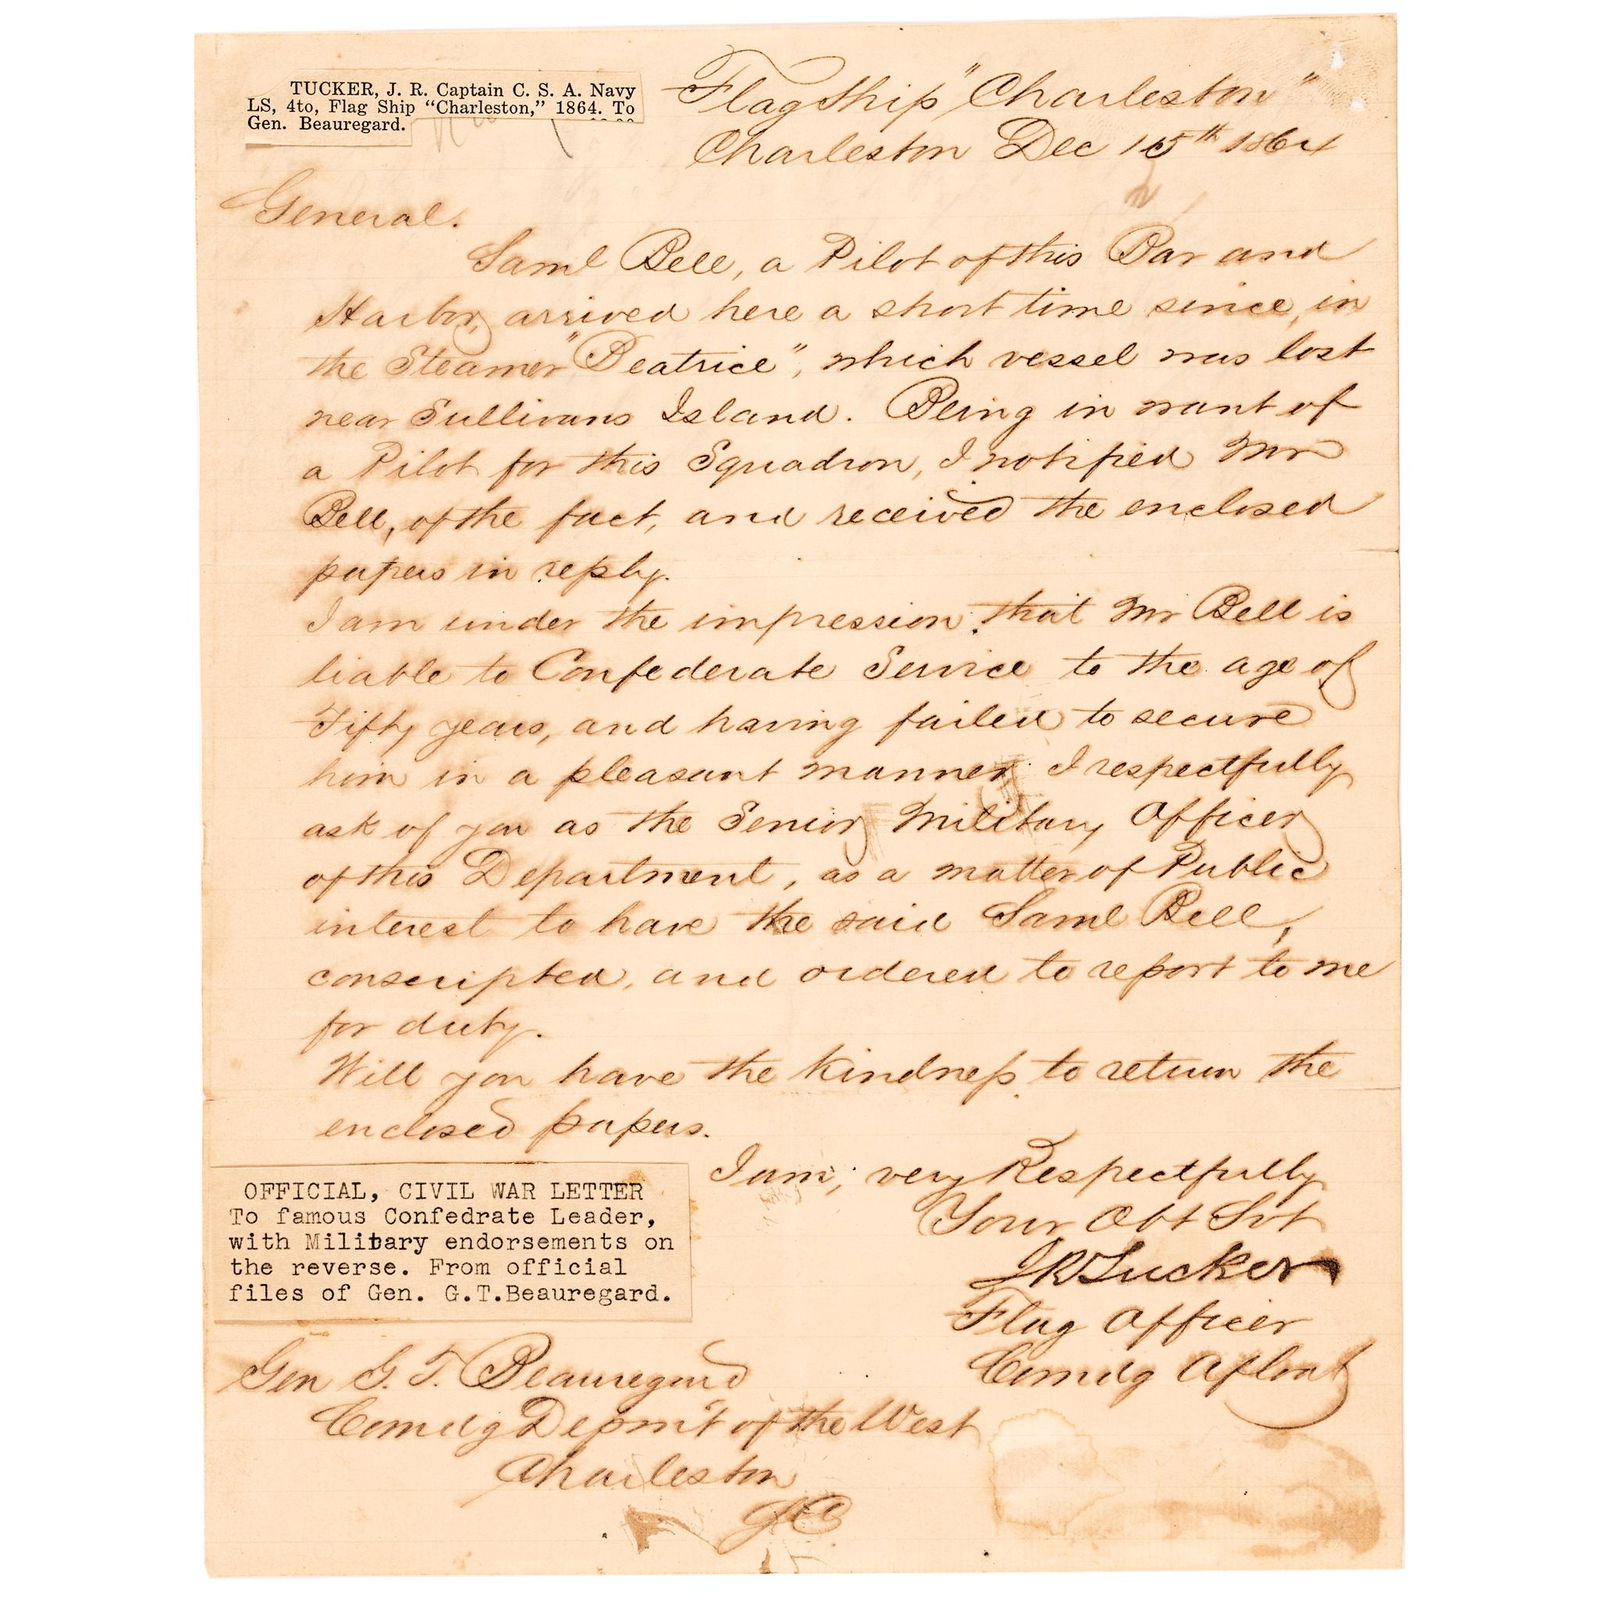 TUCKER, J. R. Captain C. S. A. Navy
LS, 4to, Flag Ship “Charleston,” 1864. To
Gen. Beauregard.
Flag Ship "Charleston"
Charleston Dec 15th 1864
General.
Saml Bell, a Pilot of this Bar and
Harbor, arrived here a short time since, in
the Steamer "Beatrice", which vessel was lost
near Sullivans Island. Being in want of
a Pilot for this Squadron, I notified Mr
Bell, of the fact, and received the enclosed
papers in reply.
I am under the impression that Mr Bell is
liable to Confederate Service to the age of
Fifty years, and having failed to secure
him in a pleasant manner, I respectfully
ask of you as the Senior Military Officer
of this Department, as a matter of Public
interest to have the said Saml Bell,
conscripted, and ordered to report to me
for duty.
Will you have the kindness to return the
enclosed papers.
I am, very Respectfully
Your Obt Svt
JRTucker
Flag Officer
Comdg Afloat
OFFICIAL, CIVIL WAR LETTER
To famous Confedrate Leader,
with Military endorsements on
the reverse. From official
files of Gen. G.T.Beauregard.
Gen G. T. Beauregard
Comdg Depm't of the West
Charleston
SC